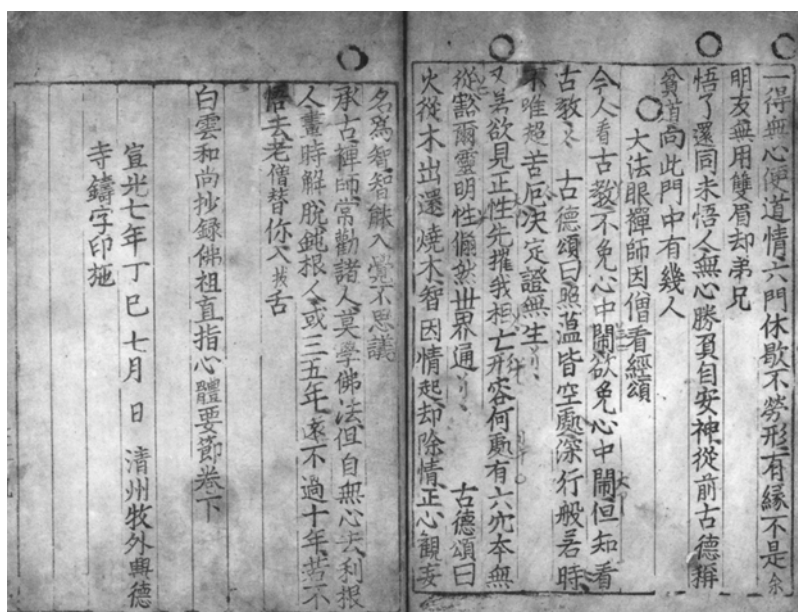 一得無心便道情六門休歇不勞形有緣不是余
朋友無用雙眉却弟兄
悟了還同未悟人無心勝負自安神從前古德稱
貧道向此門中有幾人
大法眼禪師因僧看經頌
今人看古教不免心中鬧欲免心中鬧但知看
古教 古德頌曰照蕴皆空處深行般若時
不唯超苦厄決定證無生
又若欲見正性先摧我相亡形容何處有六穴本無
從豁爾靈明性翛然世界通 古德頌曰
火從木出還燒木智因情起却除情正心觀妄
名爲智智能入覺不思議
承古禪師常勸諸人莫學佛法但自無心去利根
人晝時解脫鈍根人或三五年遠不過十年若不
悟去老僧替你入拔舌
白雲和尚抄錄佛祖直指心體要節卷下
宣光七年丁巳七月 日 清州牧外興德
寺鑄字印施